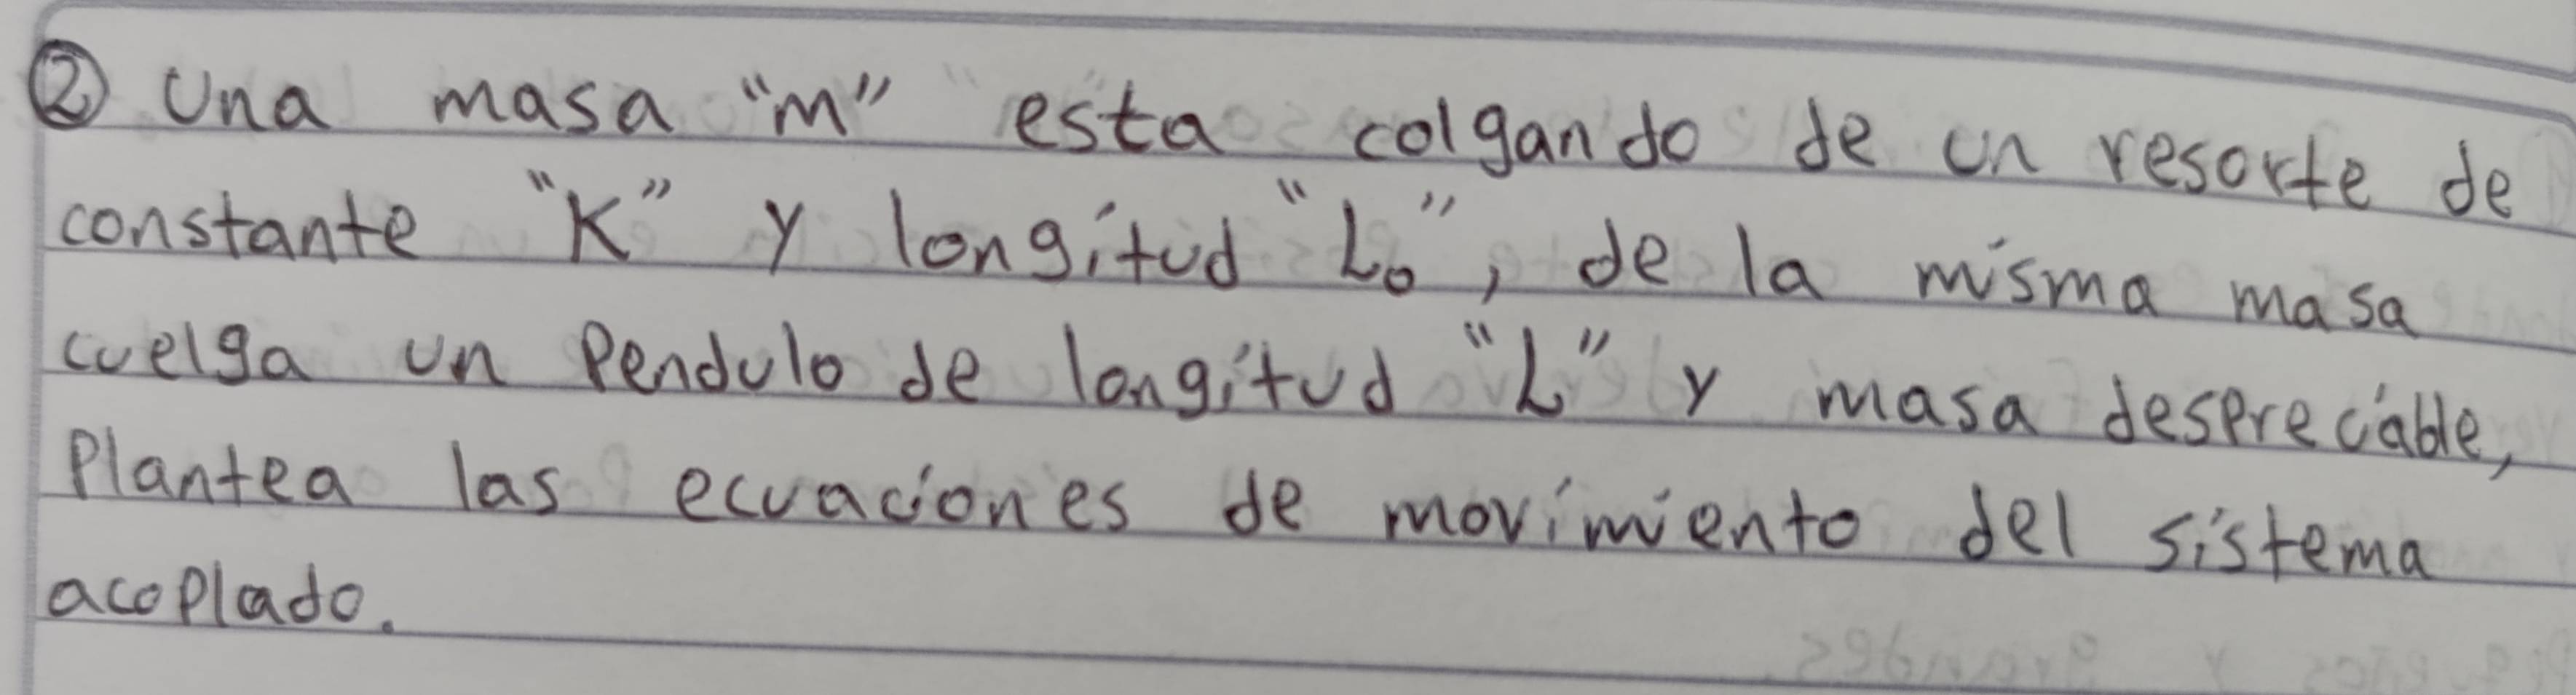 ② Una masa "m" esta colgando de un resorte de
constante "K" y longitud "L₀", de la misma masa
cuelga un Pendulo de longitud "L" y masa despreciable,
Plantea las ecuaciones de movimiento del sistema
acoplado.